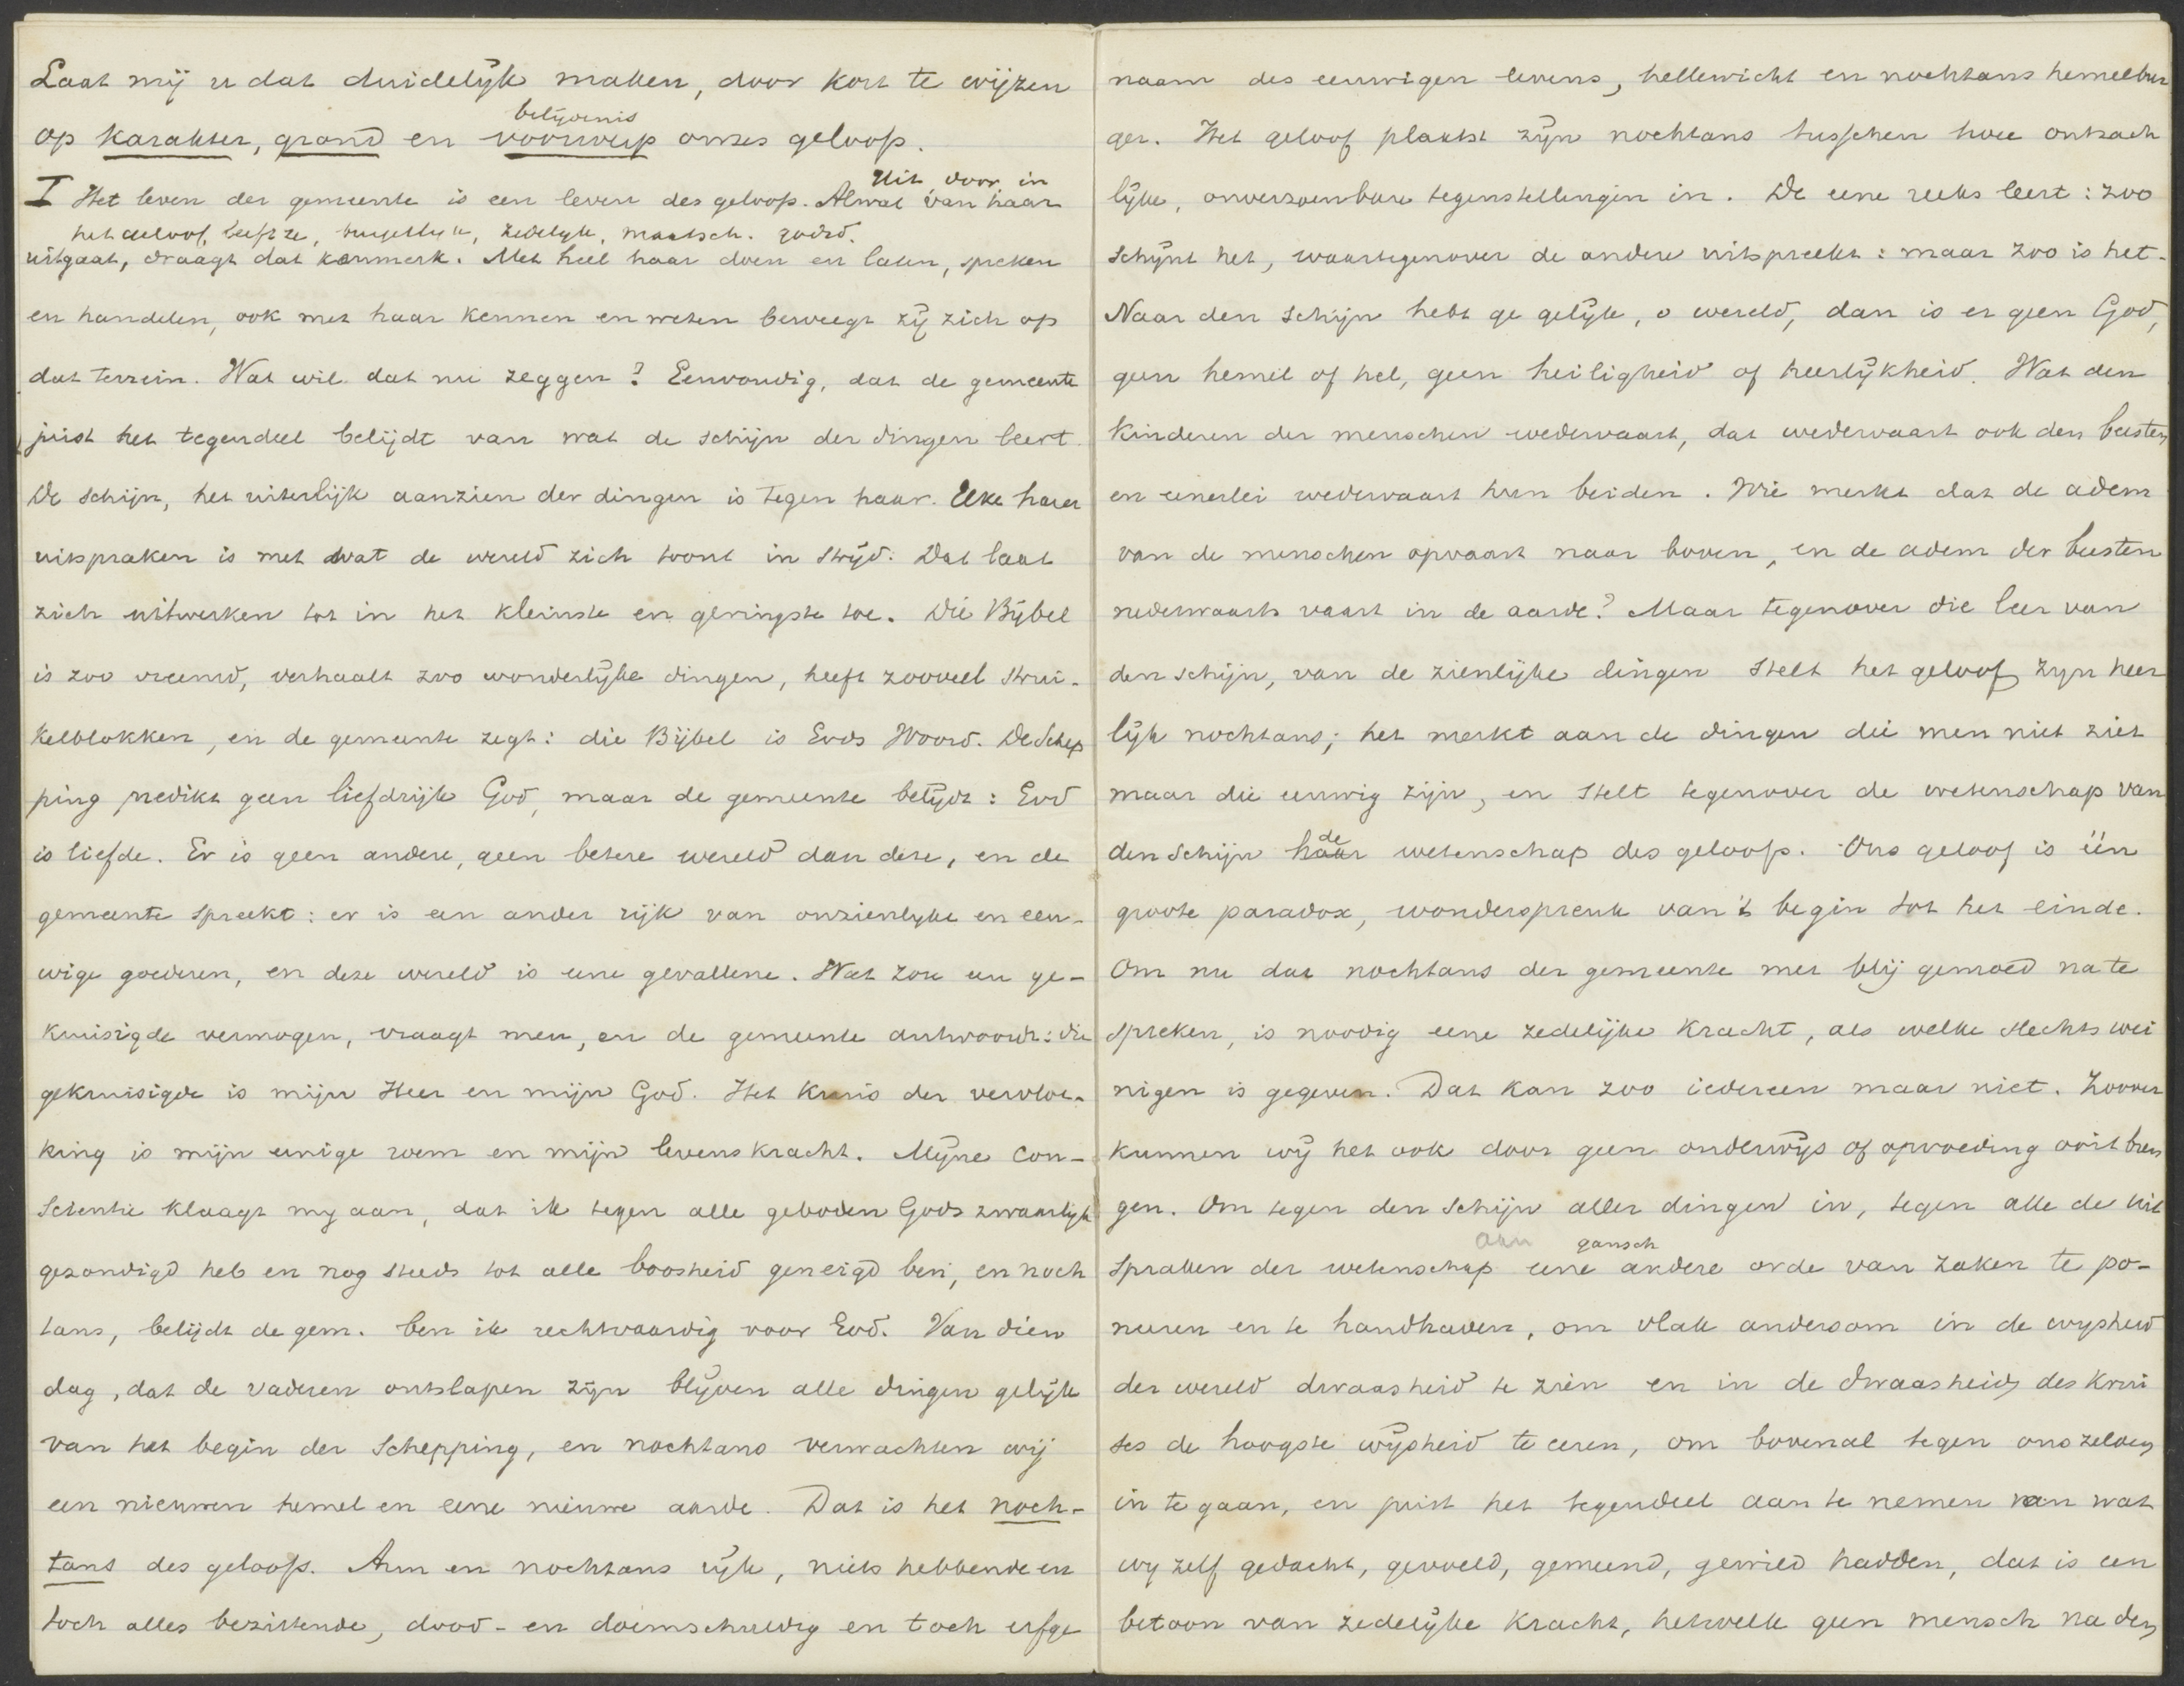 Laat mij u dat duidelijk maken, door kort te wijzen
belijdenis
op karakter, grond en voorwerp onzes geloofs.
Uit, door, in
I Het leven der gemeente is een leven des geloofs. Alwat van haar
het geloof leeft ze, burgerlijk, zedelijk, maatsch. godsd.
uitgaat, draagt dat kenmerk. Met heel haar doen en laten, spreken
en handelen, ook met haar kennen en weten beweegt zij zich op
dat terrein. Wat wil dat nu zeggen? Eenvoudig, dat de gemeente
juist het tegendeel belijdt van wat de schijn der dingen leert.
De schijn, het uiterlijk aanzien der dingen is tegen haar. Elke harer
uitspraken is met wat de wereld zich toont in strijd. Dat laat
zich uitwerken tot in het kleinste en geringste toe. Die Bijbel
is zoo vreemd, verhaalt zoo wonderlijke dingen, heeft zooveel strui-
kelblokken, en de gemeente zegt: die Bijbel is Gods Woord. De Schep
ping predikt geen liefdrijk God, maar de gemeente belijdt: God
is liefde. Er is geen andere, geen betere wereld dan deze, en de
gemeente spreekt: er is een ander rijk van onzienlijke en eeu-
wige goederen, en deze wereld is eene gevallene. Wat zou een ge-
kruisigde vermogen, vraagt men, en de gemeente antwoordt: die
gekruisigde is mijn Heer en mijn God. Het kruis der vervloe-
king is mijn eenige roem en mijn levenskracht. Mijne con-
scientie klaagt mij aan, dat ik tegen alle geboden Gods zwaarlijk
gezondigd heb en nog steeds tot alle boosheid geneigd ben, en noch
tans, belijdt de gem. ben ik rechtvaardig voor God. Van dien
dag, dat de vaderen ontslapen zijn blijven alle dingen gelijk
van het begin der Schepping, en nochtans verwachten wij
een nieuwen hemel en eene nieuwe aarde. Dat is het noch-
tans des geloofs. Arm en nochtans rijk, niets hebbende en
toch alles bezittende, dood- en doemschuldig en toch erfge
naam des eeuwigen levens, hellewicht en nochtans hemelbur
ger. Het geloof plaatst zijn nochtans tusschen twee ontzach
lijke, onverzoenbare tegenstellingen in. De eene reeks leert: zoo
schijnt het, waartegenover de andere uitspreekt: maar zoo is het.
Naar den schijn hebt ge gelijk, o wereld, dan is er geen God,
geen hemel of hel, geen heiligheid of heerlijkheid. Wat den
kinderen der menschen wedervaart, dat wedervaart ook den beesten
en eenerlei wedervaart hun beiden. Wie merkt dat de adem
van de menschen opvaart naar boven, en de adem der beesten
nederwaarts vaart in de aarde? Maar tegenover die leer van
den schijn, van de zienlijke dingen stelt het geloof zijn heer
lijk nochtans; het merkt aan de dingen die men niet ziet
maar die eeuwig zijn, en stelt tegenover de wetenschap van
de
den schijn haar wetenschap des geloofs. Ons geloof is één
groote paradox, wonderspreuk van 't begin tot het einde.
Om nu dat nochtans der gemeente met blij gemoed na te
spreken, is noodig eene zedelijke kracht, als welke slechts wei
nigen is gegeven. Dat kan zoo iedereen maar niet. Zoover
kunnen wij het ook door geen onderwijs of opvoeding ooit bren
gen. Om tegen den schijn aller dingen in, tegen alle de uit
gansch
spraken der wetenschap eene andere orde van zaken te po-
neeren en te handhaven, om vlak andersom in de wijsheid
der wereld dwaasheid te zien en in de dwaasheid des krui
ses de hoogste wijsheid te eeren, om bovenal tegen ons zelven
in te gaan, en juist het tegendeel aan te nemen van wat
wij zelf gedacht, gevoeld, gemeend, gewild hadden, dat is een
betoon van zedelijke kracht, hetwelk geen mensch na den